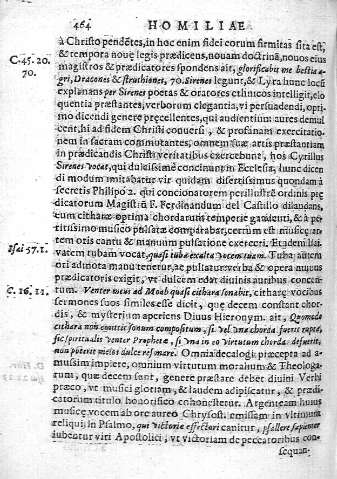 464 HOMILIAE
à Christo pendētes, in hoc enim fidei eorum firmitas sita est,
& tempora nouę legis prædicens, nouam doctrinā, nouos eius
C. 45. 20. magistros & prædicatores spondens ait, glorificabit me bestia a-
70. gri, Dracones & struthiones, 70. Sirenes legunt, & Lyra hunc locū
explanans per Sirenes poetas & oratores ethnicos intelligit, elo
quentia præstantes, verborum elegantia, vi persuadendi, opti-
mo dicendi genere pręcellentes, qui audientium aures demul
cent, hi ad fidem Christi conuersi, & profanam exercitatio-
nem in sacram commutantes, omnem suæ artis præstantiam
in prædicandis Christi veritatibus exercebunt, hos Cyrillus
Sirenes vocat, qui dulcissimè concinunt in Ecclesia, hunc dicen
di modum imitabatur vir quidam disertissimus quondam à
secretis Philipo 2. qui concionatorem perillustrē ordinis prę
dicatorum Magistrū F. Ferdinandum del Castillo dilaudans,
eum citharæ optima chordarum temperie gaudenti, & à pe
ritissimo musico pulsatæ comparabat, certum est musicæ ar-
tem oris cantu & manuum pulsatione exerceri. Et ad eni Isai
Isai 57. 1. vatem tubam vocat, quasi tuba exalta vocem tuam. Tuba autem
ori admota manu tenetur, ac pulsatur verba & opera nouus
prædicatoris exigit, vt dulcem edat diuinis auribus concen-
C. 16. 11. tum. Venter meus ad Moab quasi cithara sonabit, citharæ vocibus
sermones suos similes esse dicit, quæ decem constant chor-
dis, & mysterium aperiens Diuus Hieronym. ait, Quomodo
cithara non emittit sonum compositum, si vel vna chorda fuerit rupta,
sic spiritualis venter Prophetæ, si vna in eo virtutum chorda defuerit,
non poterit melos dulce resonare. Omnia decalogi præcepta ad a-
mussim impere, omnium virtutum moralium & Theologa-
rum, quæ decem sunt, genere præstare debet diuini Verbi
præco, vt musici gloriam, & laudem adipiscatur, & prædi-
catorum titulo honorifico cohonestetur. Argenteam huius
musicę vocem ab ore aureo Chrysost. emissam in vltimum
reliqui: In Psalmo, qui victoriæ effectori canitur, psallere sapienter
iubentur viri Apostolici, vt victoriam de peccatoribus con-
sequan-